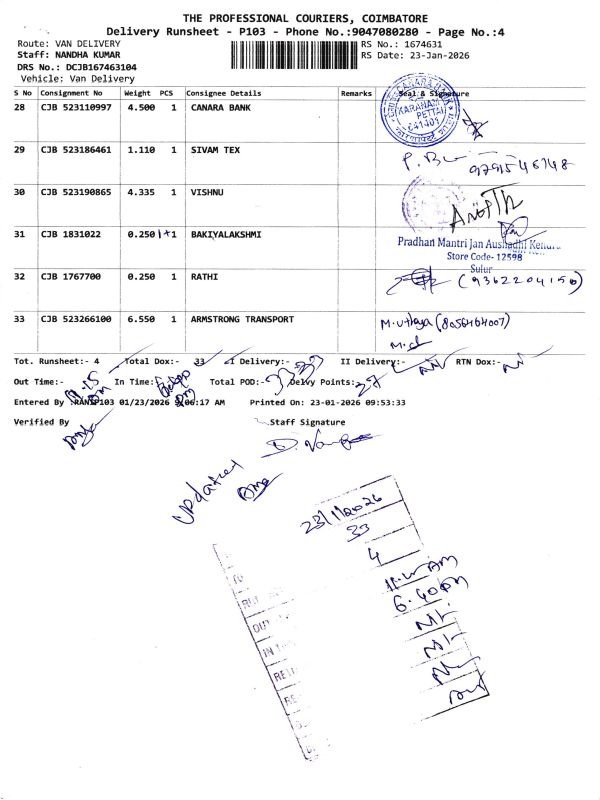 THE PROFESSIONAL COURIERS, COIMBATORE
Delivery Runsheet - P103 - Phone No.:9047080280 - Page No.:4
Route: VAN DELIVERY
RS No.: 1674631
Staff: NANDHA KUMAR
RS Date: 23-Jan-2026
DRS No.: DCJB167463104
Vehicle: Van Delivery
S No Consignment No Weight PCS Consignee Details Remarks Seal & Signature
28 CJB 523110997 4.500 1 CANARA BANK
KARANAM PETTAI 641401
29 CJB 523186461 1.110 1 SIVAM TEX
9791546748
30 CJB 523190865 4.335 1 VISHNU
31 CJB 1831022 0.250 1+1 BAKIYALAKSHMI
Pradhan Mantri Jan Aushadhi Kendra
Store Code- 12598
Sulur
32 CJB 1767700 0.250 1 RATHI
(9362204150)
33 CJB 523266100 6.550 1 ARMSTRONG TRANSPORT
(8056464007)
Tot. Runsheet:- 4 Total Dox:- 33 I Delivery:- 33 II Delivery:- RTN Dox:-
Out Time:- In Time:- Total POD:- Delvy Points:-
Entered By :RANIP103 01/23/2026 9:06:17 AM Printed On: 23-01-2026 09:53:33
Verified By Staff Signature
updated
23/1/2026
33
4
OUT
6.40 PM
IN